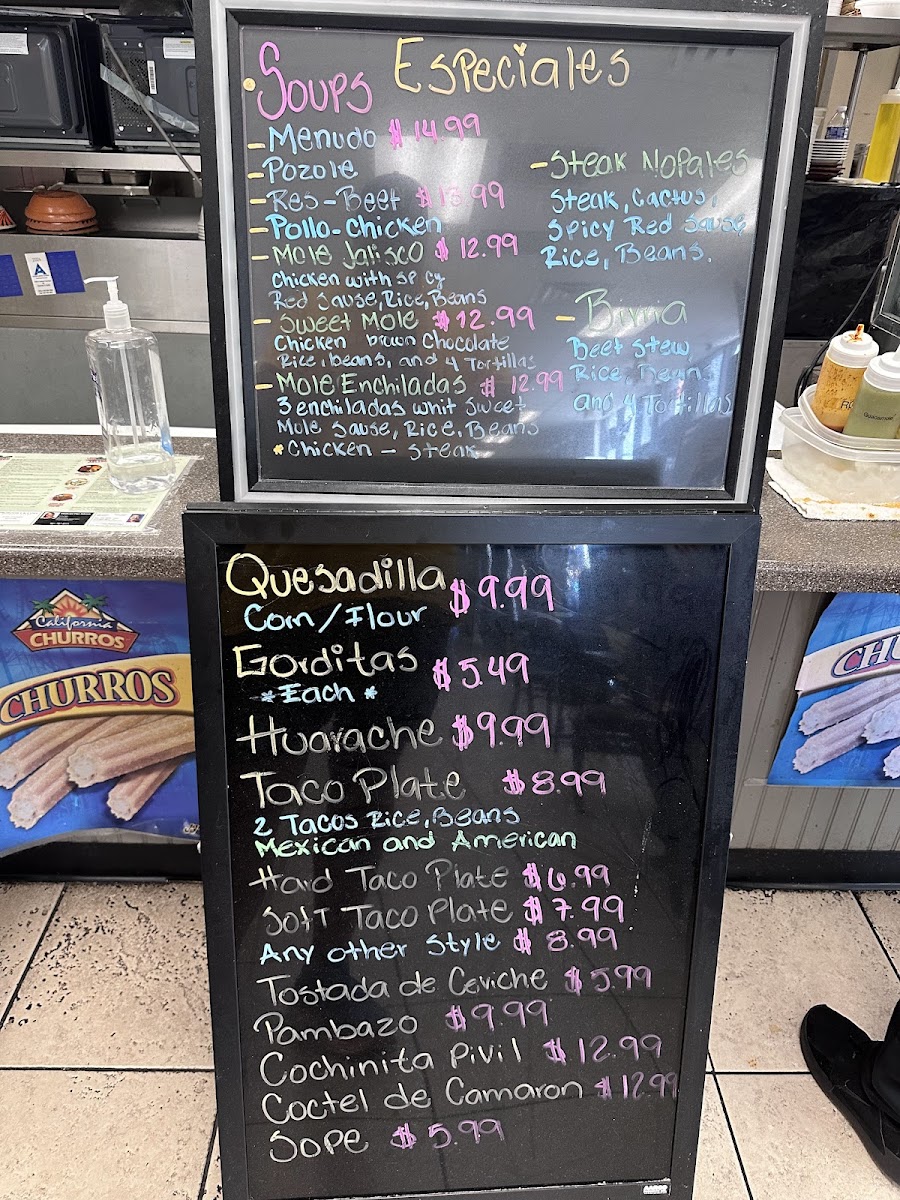 Soups Especiales
- Menudo $14.99
- Pozole
- Res-Beef $13.99
- Pollo-Chicken
- Mole Jalisco $12.99
Chicken with spicy
Red Sause, Rice, Beans
- Sweet Mole $12.99
Chicken brown Chocolate
Rice, beans, and 4 Tortillas
- Mole Enchiladas $12.99
3 enchiladas whit sweet
Mole sause, Rice, Beans
* Chicken - Steak
- Steak Nopales
Steak, Cactus,
Spicy Red Sause
Rice, Beans.
Beef Stew,
Rice, Beans
and 4 Tortillas
Quesadilla $9.99
Corn/Flour
Gorditas $5.49
*Each*
Huarache $9.99
Taco Plate $8.99
2 Tacos Rice, Beans
Mexican and American
Hard Taco Plate $6.99
Soft Taco Plate $7.99
Any other style $8.99
Tostada de Ceviche $5.99
Pambazo $9.99
Cochinita Pivil $12.99
Coctel de Camaron $12.99
Sope $5.99
California
CHURROS
CHURROS
A